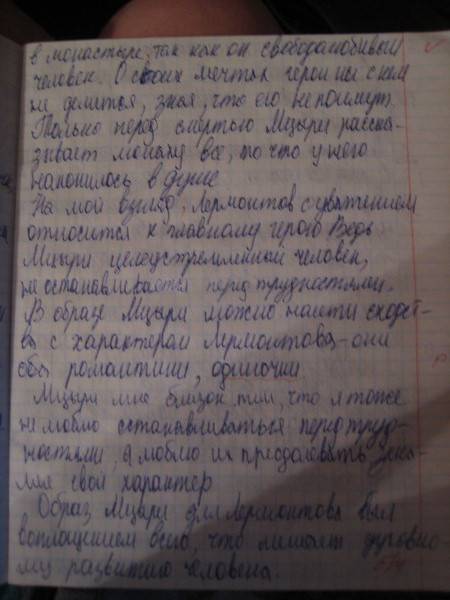 в монастыре, так как он свободолюбивый
человек. О своих мечтах герой ни с кем
не делится, зная, что его не поймут.
Только перед смертью Мцыри расска-
зывает монаху всё, то что у него
накопилось в душе
На мой взгляд, Лермонтов с уважением
относится к главному герою Ведь
Мцыри целеустремлённый человек,
не останавливается перед трудностями.
В образе Мцыри можно найти сходст-
ва с характером Лермонтова - они
оба романтики, одиночки.
Мцыри мне близок тем, что я тоже
не люблю останавливаться перед труд-
ностями, а люблю их преодолевать,
ляя свой характер
Образ Мцыри для Лермонтова был
воплощением всего, что мешает духовно-
му развитию человека.